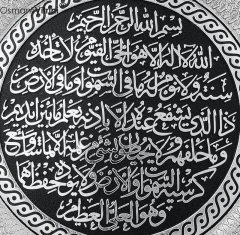 Osman
بسم الله الرحمن الرحيم
الله لا اله الا هو الحي القيوم لا تأخذه
سنة ولا نوم له ما في السموات وما في الارض من
ذا الذي يشفع عنده الا باذنه يعلم ما بين ايديهم
وما خلفهم ولا يحيطون بشيء من علمه الا بما شاء وسع
كرسيه السموات والارض ولا يؤده حفظهما
وهو العلي العظيم